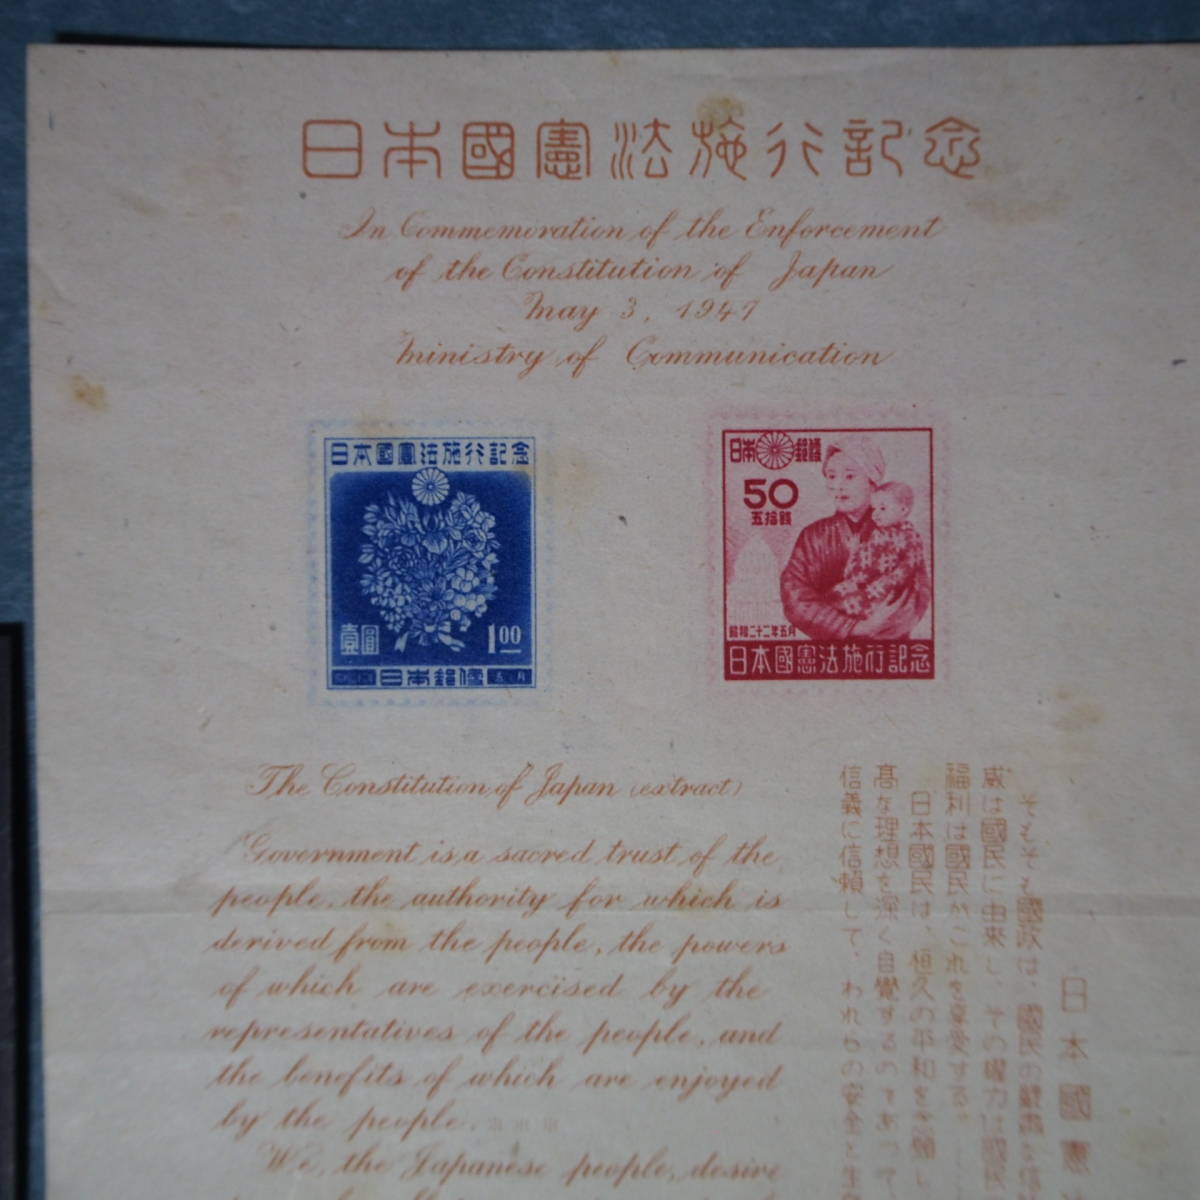 日本國憲法施行記念
In Commemoration of the Enforcement
of the Constitution of Japan
May 3, 1947
Ministry of Communication
日本國憲法施行記念
壹圓
1.00
日本郵便
五月
日本郵便
50
五拾錢
昭和二十二年五月
日本國憲法施行記念
The Constitution of Japan (extract)
Government is a sacred trust of the
people, the authority for which is
derived from the people, the powers
of which are exercised by the
representatives of the people, and
the benefits of which are enjoyed
by the people. ※※※
We, the Japanese people, desire
日本國憲
そもそも國政は、國民の嚴肅な信
威は國民に由來し、その權力は國民
福利は國民がこれを享受する。
日本國民は、恒久の平和を念願し
高な理想を深く自覺するのであつて、
信義に信賴して、われらの安全と生